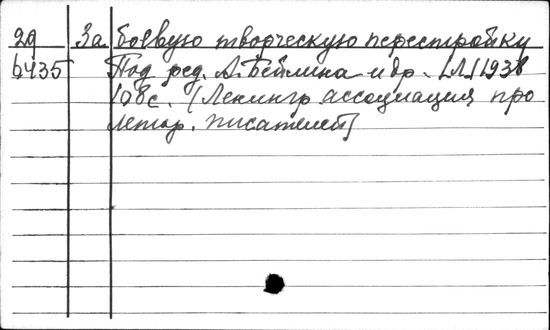 2д За боевую творческую перестройку
6435 Под ред. А. Бейлина и др. [Л] 1931
108с. (Ленингр ассоциация про
летар. писателей)